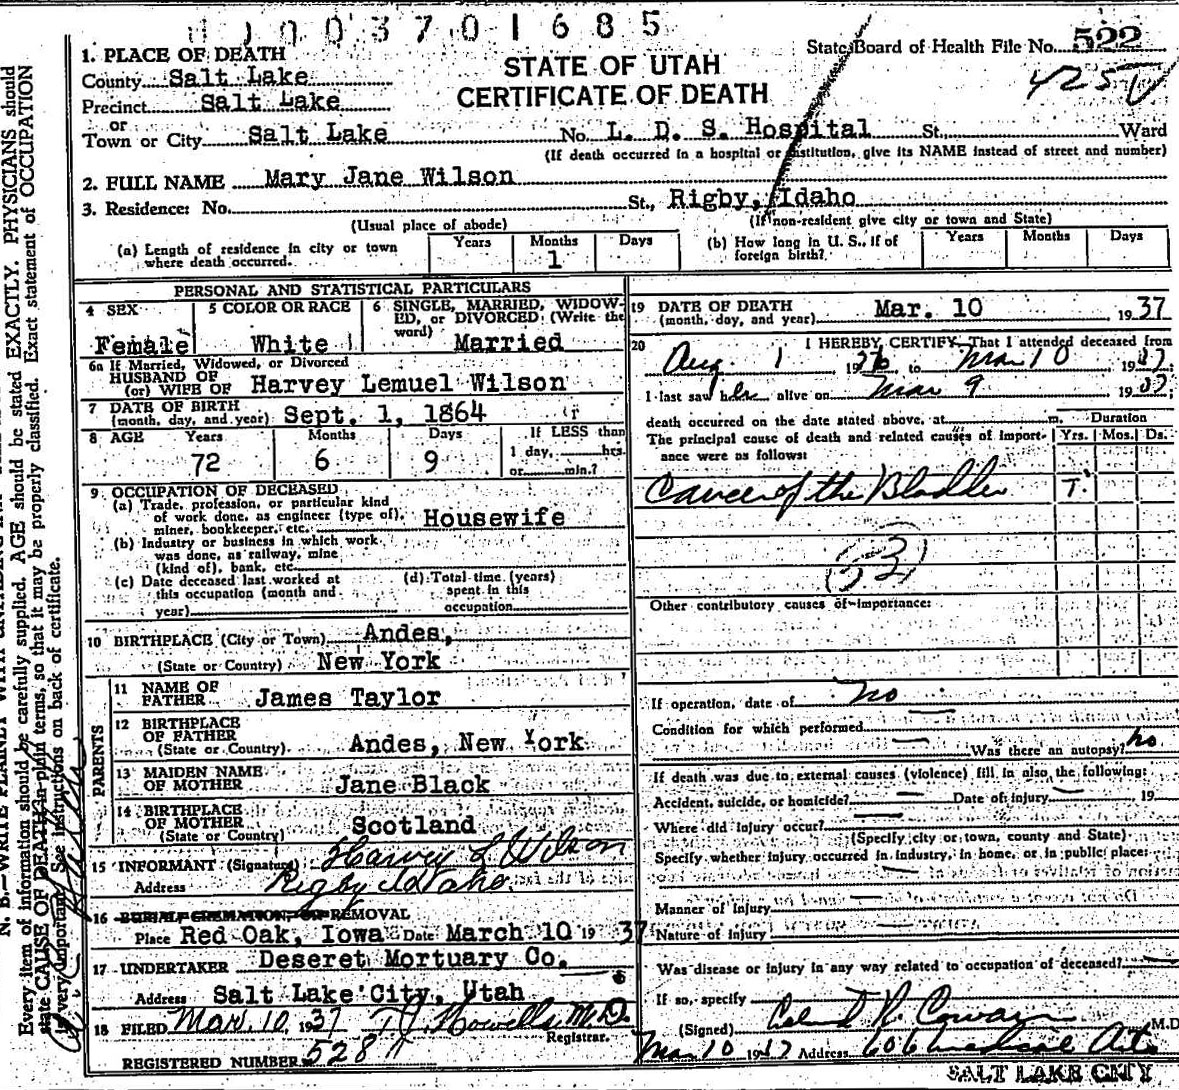 1003701685
State Board of Health File No. 522
425
STATE OF UTAH
CERTIFICATE OF DEATH
1. PLACE OF DEATH
County Salt Lake
Precinct Salt Lake
or
Town or City Salt Lake No. L. D. S. Hospital St., Ward
(If death occurred in a hospital or institution, give its NAME instead of street and number)
2. FULL NAME Mary Jane Wilson
3. Residence: No. St., Rigby, Idaho
(Usual place of abode) (If non-resident give city or town and State)
(a) Length of residence in city or town where death occurred. Years Months 1 Days
(b) How long in U. S., if of foreign birth? Years Months Days
PERSONAL AND STATISTICAL PARTICULARS
4 SEX Female
5 COLOR OR RACE White
6 SINGLE, MARRIED, WIDOWED, or DIVORCED (Write the word) Married
6a If Married, Widowed, or Divorced
HUSBAND OF
(or) WIFE OF Harvey Lemuel Wilson
7 DATE OF BIRTH
(month, day, and year) Sept. 1, 1864
8 AGE Years 72 Months 6 Days 9 If LESS than
1 day, hrs.
or min.?
9 OCCUPATION OF DECEASED
(a) Trade, profession, or particular kind
of work done, as engineer (type of),
miner, bookkeeper, etc. Housewife
(b) Industry or business in which work
was done, as railway, mine
(kind of), bank, etc.
(c) Date deceased last worked at
this occupation (month and
year)
(d) Total time (years)
spent in this
occupation
10 BIRTHPLACE (City or Town) Andes,
(State or Country) New York
PARENTS
11 NAME OF
FATHER James Taylor
12 BIRTHPLACE
OF FATHER
(State or Country) Andes, New York
13 MAIDEN NAME
OF MOTHER Jane Black
14 BIRTHPLACE
OF MOTHER
(State or Country) Scotland
15 INFORMANT (Signature) Harvey L Wilson
Address Rigby Idaho.
16 BURIAL, CREMATION, OR REMOVAL
Place Red Oak, Iowa Date March 10 19 37
17 UNDERTAKER Deseret Mortuary Co.
Address Salt Lake City, Utah
18 FILED Mar. 10, 1937 T J Howells M.D.
Registrar.
REGISTERED NUMBER 528
19 DATE OF DEATH
(month, day, and year) Mar. 10 1937
20 I HEREBY CERTIFY, That I attended deceased from
Aug. 1 1936 to Mar 10 1937
I last saw her alive on Mar 9 1937
death occurred on the date stated above, at m.
Duration
The principal cause of death and related causes of importance were as follows: Yrs. Mos. Ds.
Cancer of the Bladder
53
Other contributory causes of importance:
If operation, date of no
Condition for which performed
Was there an autopsy? no
If death was due to external causes (violence) fill in also the following:
Accident, suicide, or homicide? Date of injury 19
Where did injury occur?
(Specify city or town, county and State)
Specify whether injury occurred in industry, in home, or in public place:
Manner of Injury
Nature of Injury
Was disease or injury in any way related to occupation of deceased?
If so, specify
(Signed) M.D.
Mar 10 1937 Address 606 Medical Arts
SALT LAKE CITY
Every item of information should be carefully supplied. AGE should be stated EXACTLY. PHYSICIANS should
state CAUSE OF DEATH in plain terms, so that it may be properly classified. Exact statement of OCCUPATION
is very important. See instructions on back of certificate.